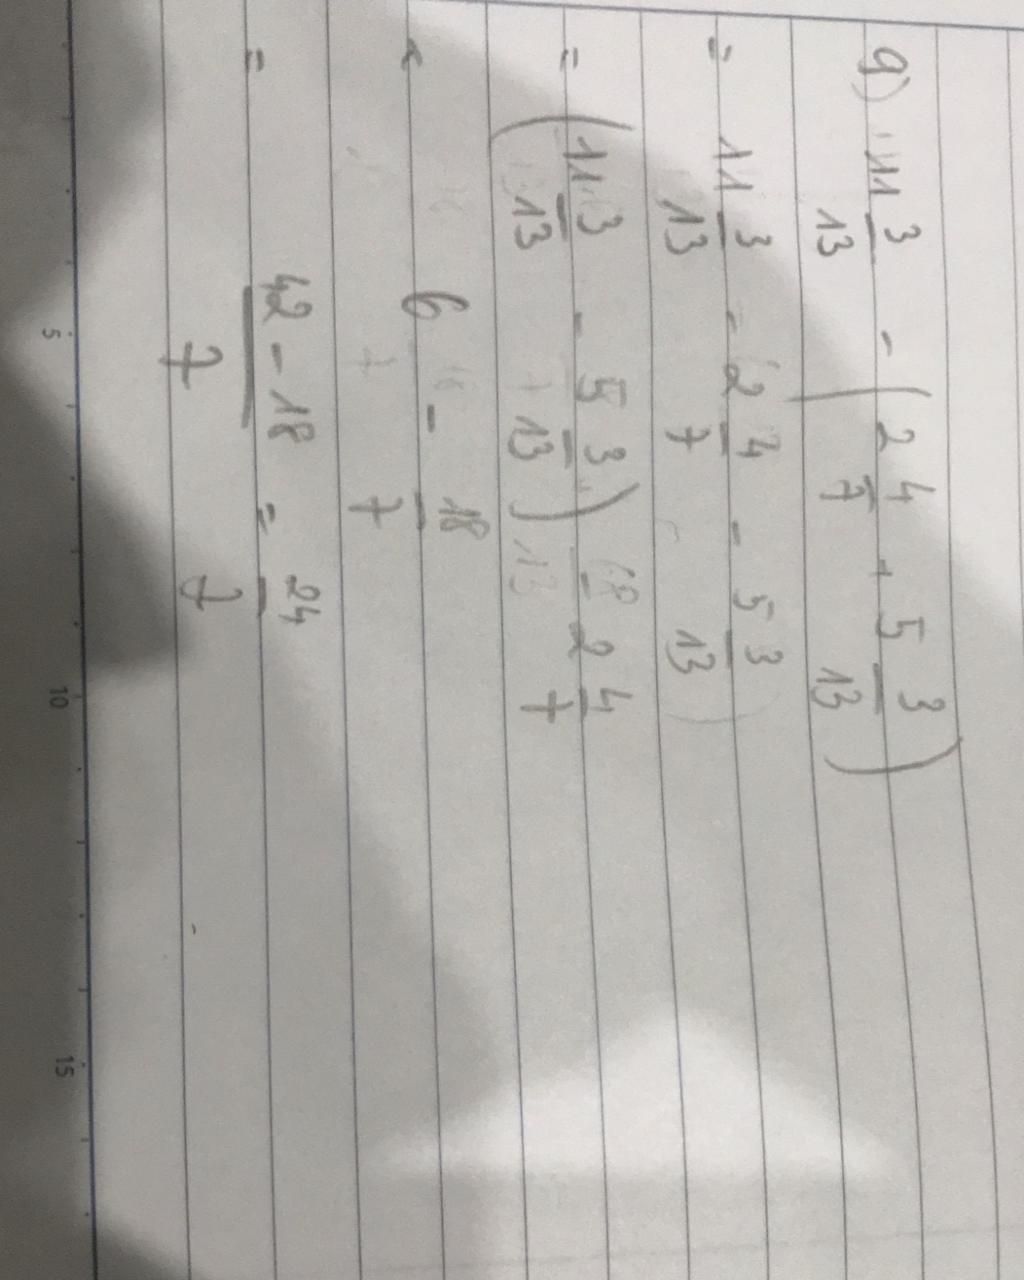 g) 11 3/13 - (2 4/7 + 5 3/13)
= 11 3/13 - 2 4/7 - 5 3/13
= (11 3/13 - 5 3/13) - 2 4/7
= 6 - 18/7
= 42 - 18/7 = 24/7
5 10 15